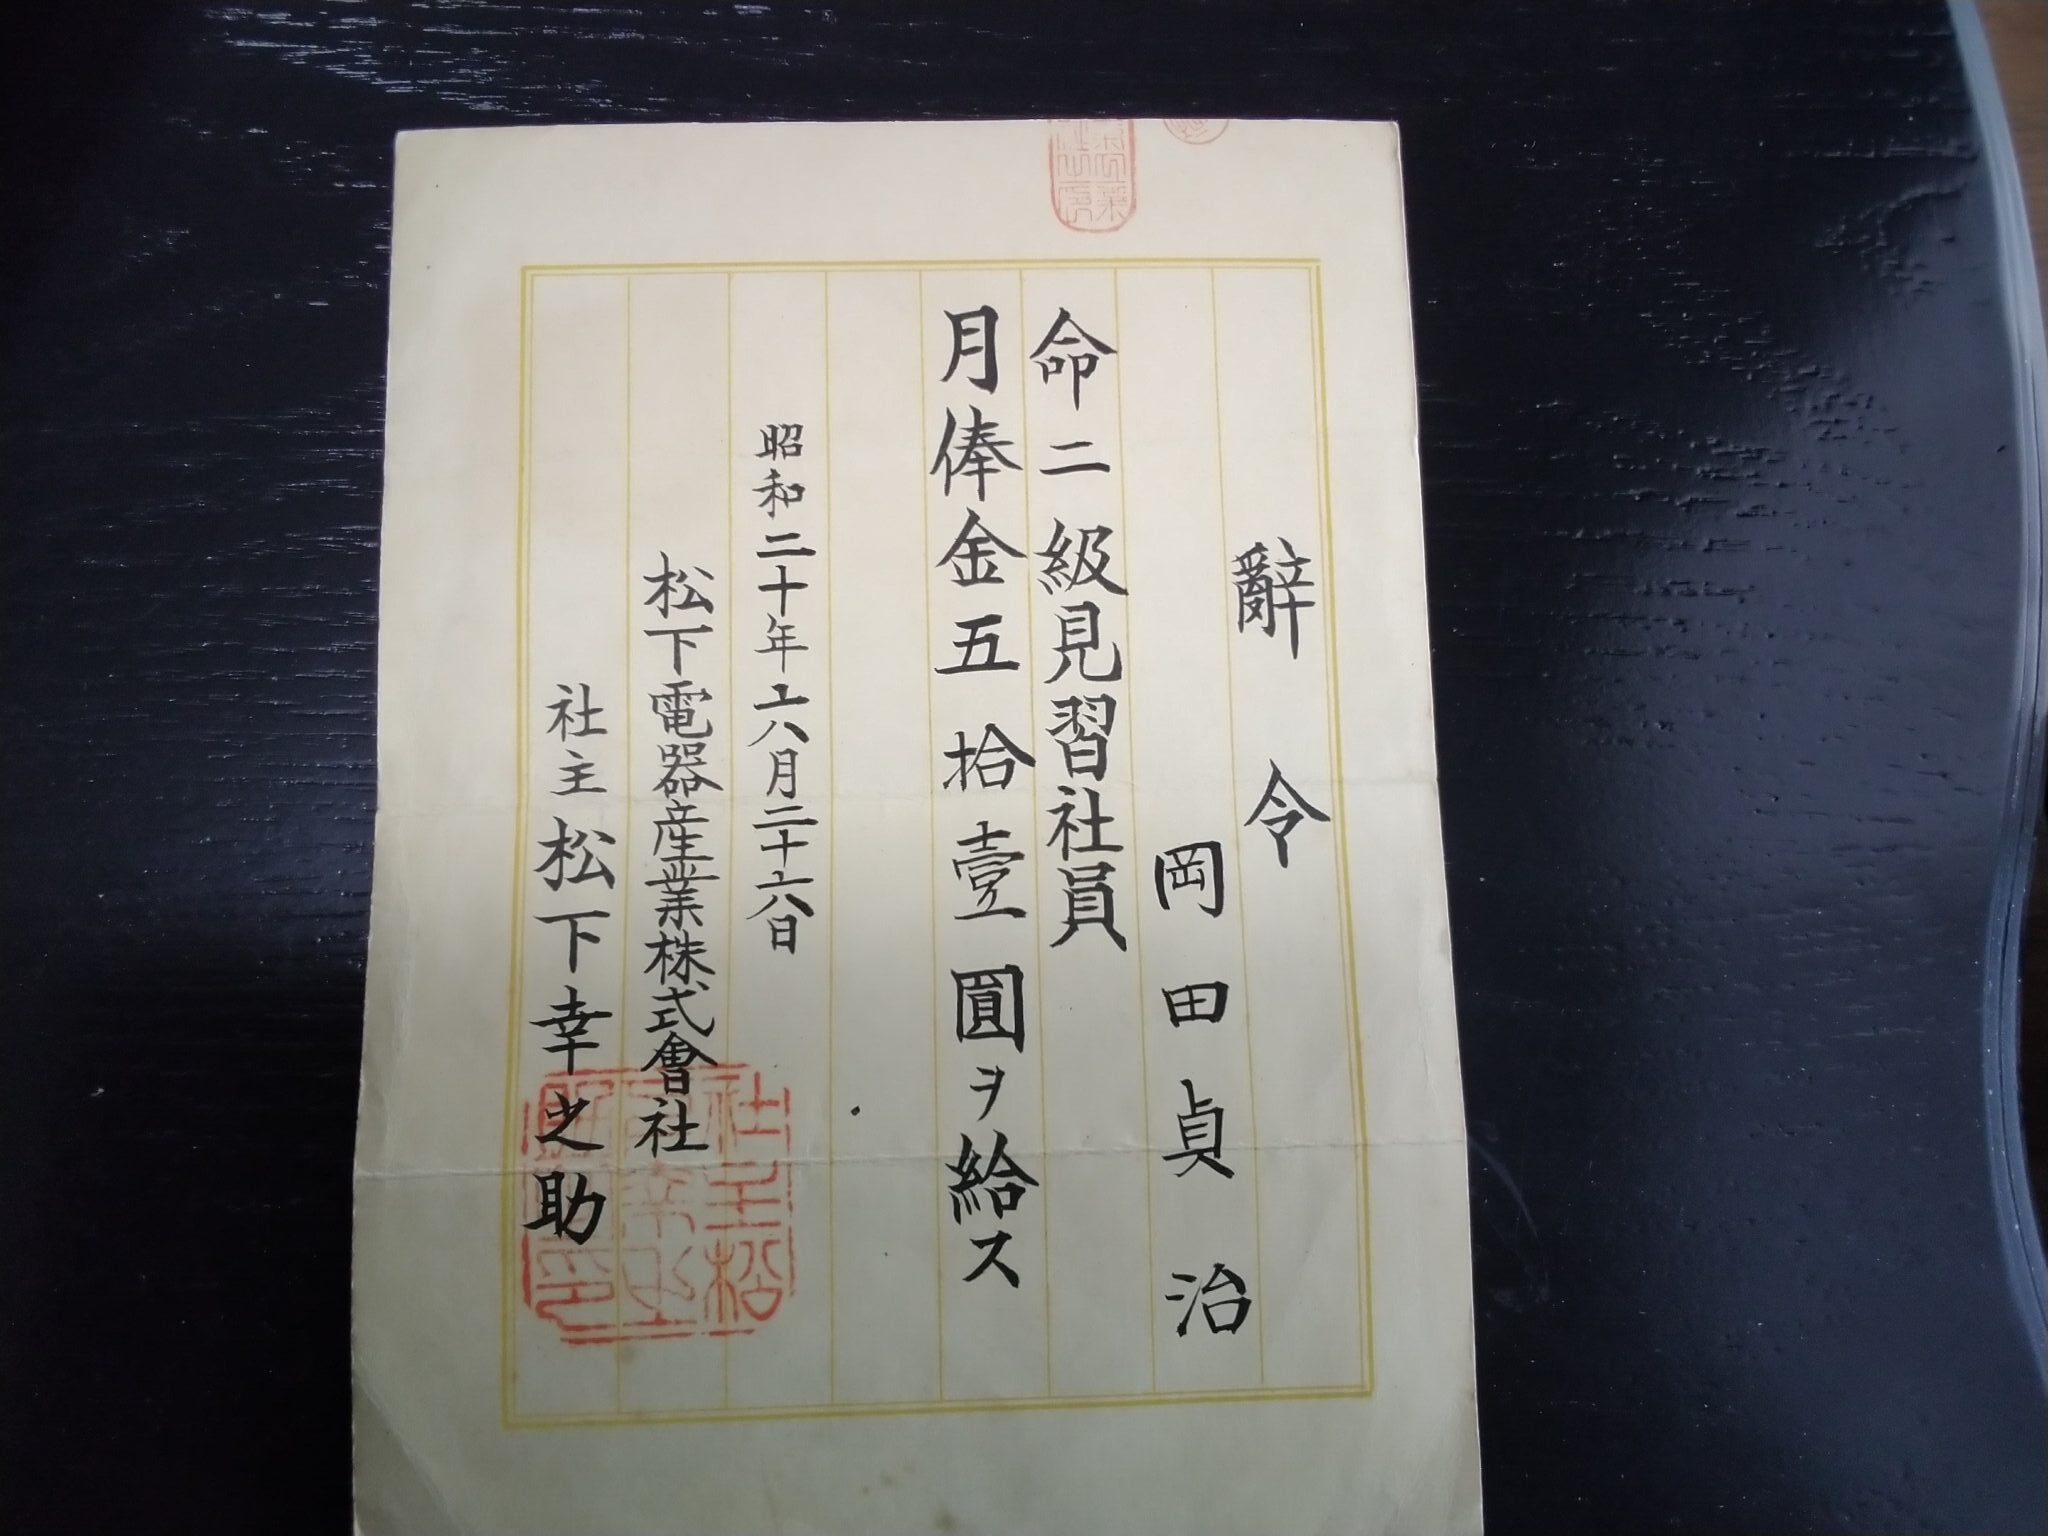 辭令
岡田貞治
命二級見習社員
月俸金五拾壹圓ヲ給ス
昭和二十年六月二十六日
松下電器産業株式會社
社主松下幸之助